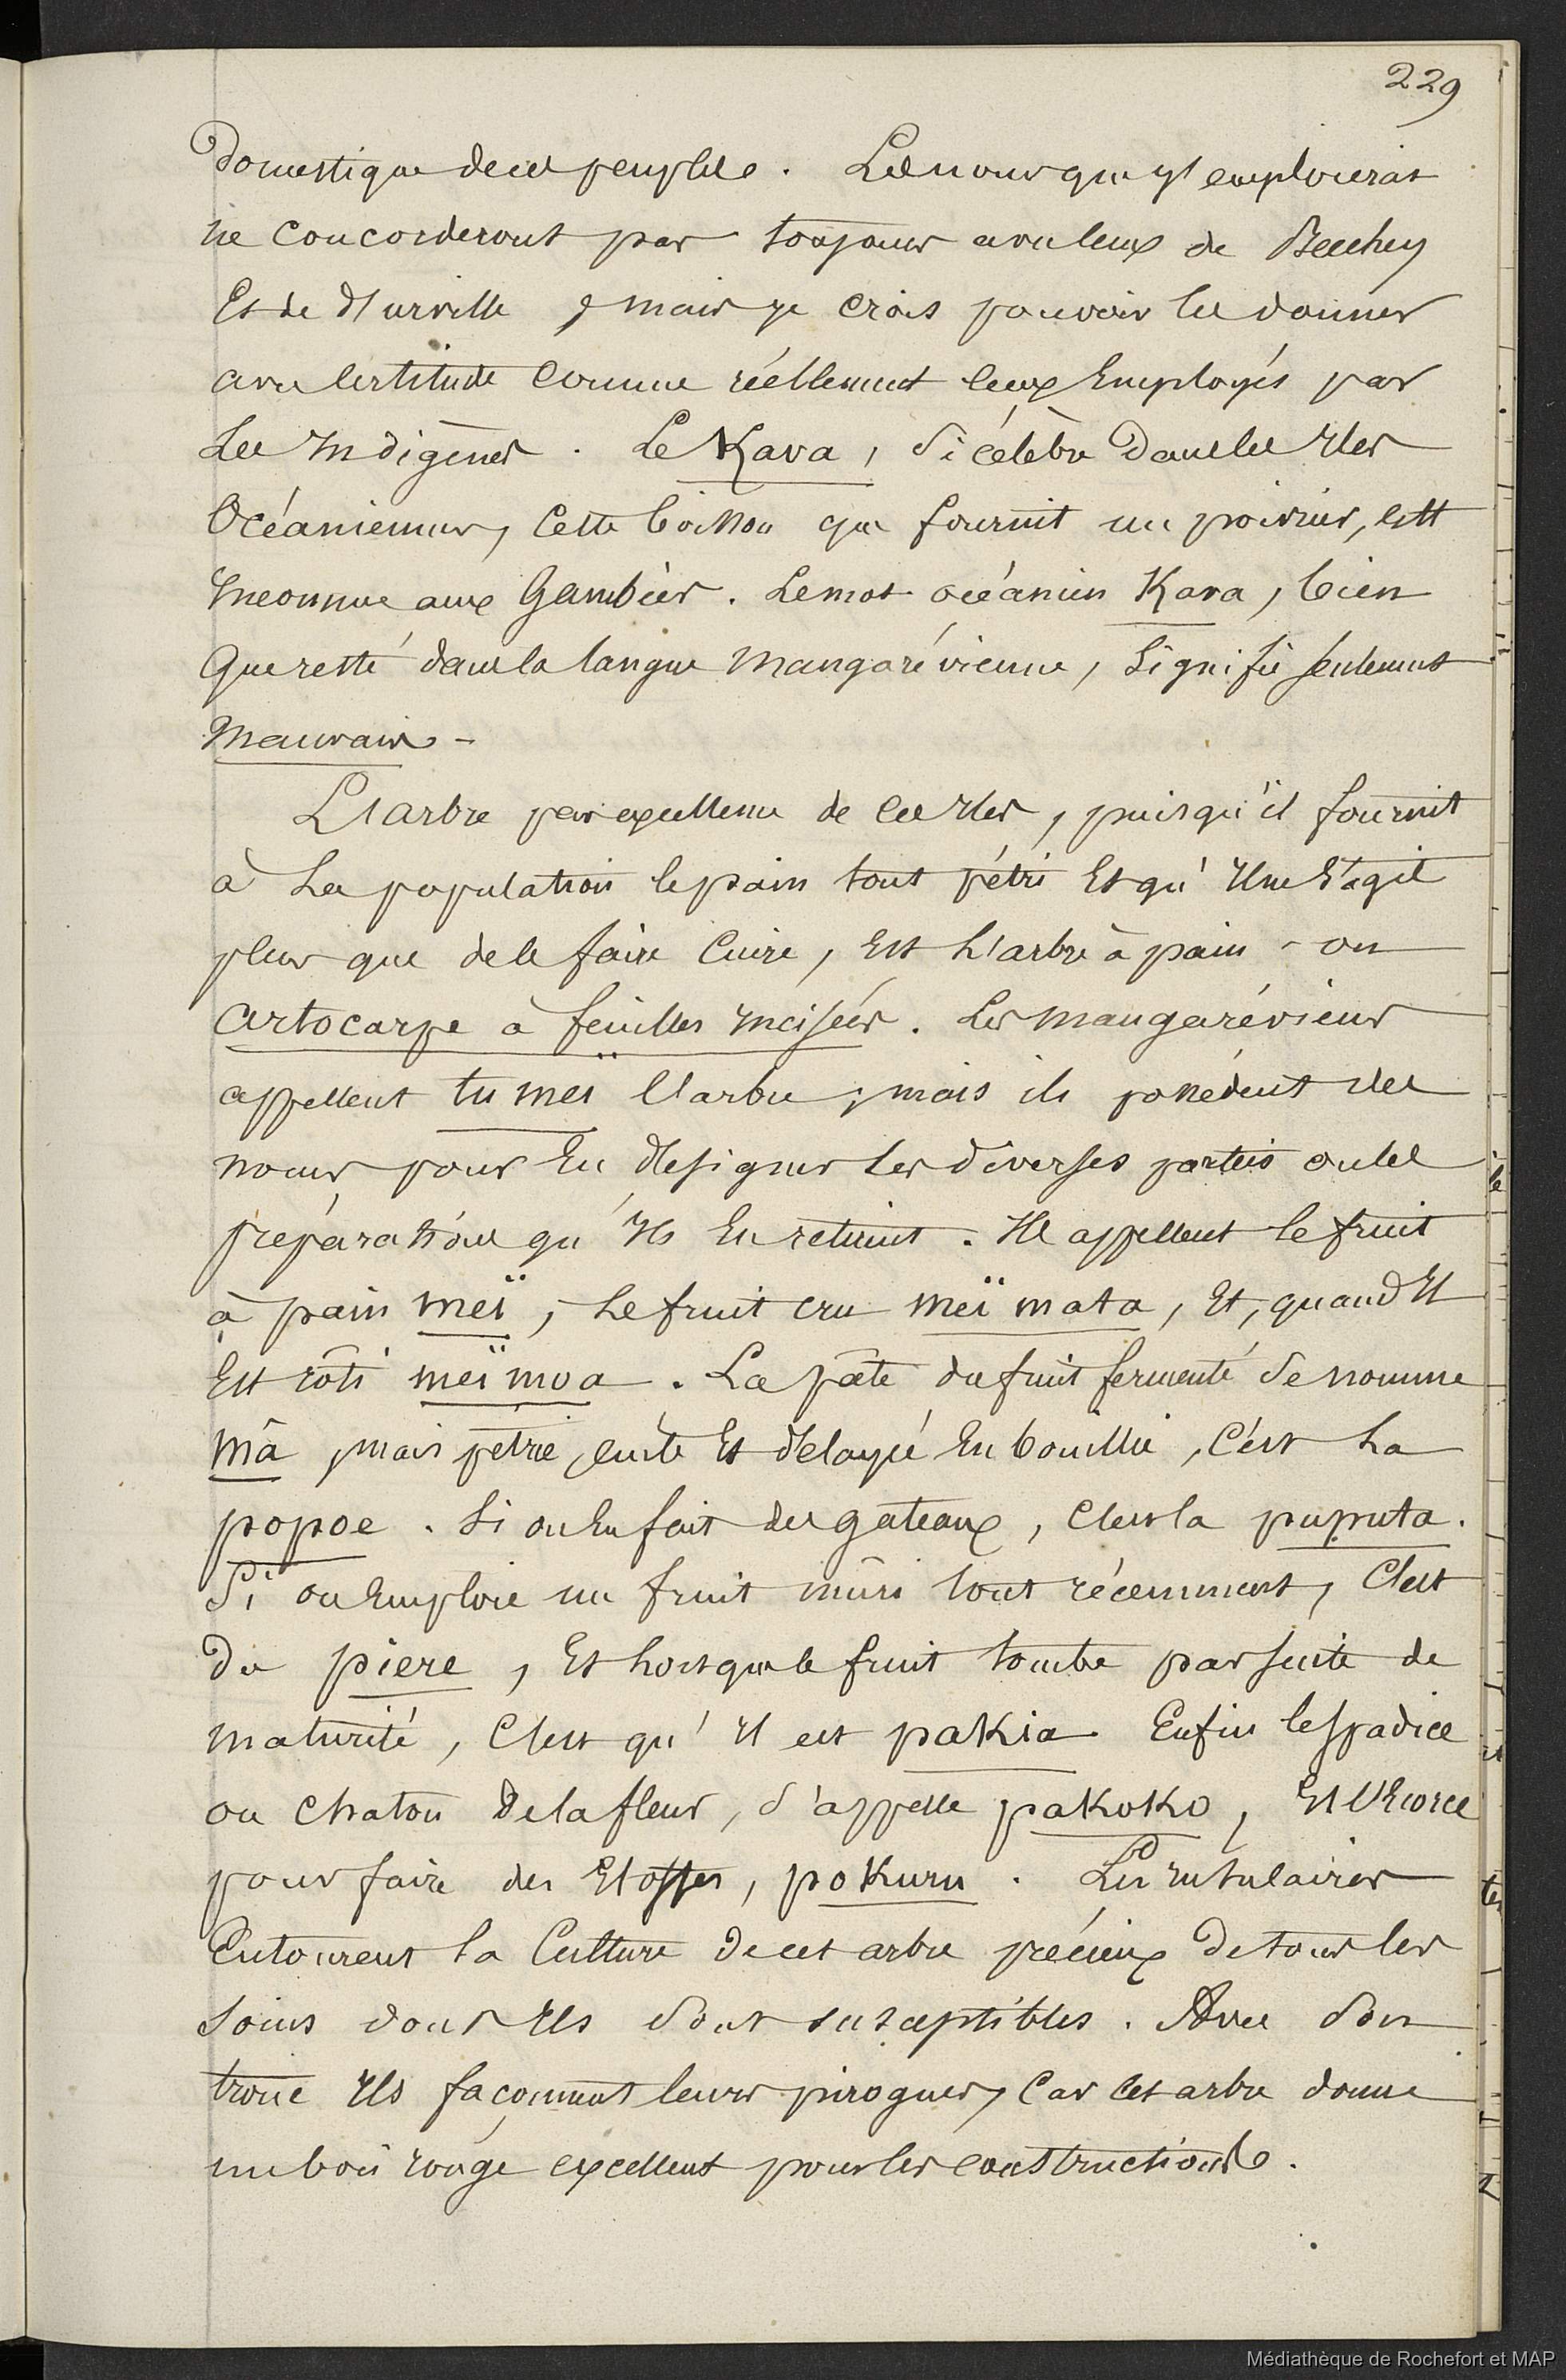 229
domestique de ces peuples. Les noms que j'emploierai
ne concorderont pas toujours avec ceux de Beechey
et de d'Urville, mais je crois pouvoir les donner
avec certitude comme réellement ceux employés par
les indigènes. Le Kava, si célèbre dans les îles
Océaniennes, cette boisson que fournit un poivrier, est
inconnue aux Gambier. Le mot océanien Kava, bien
que resté dans la langue mangarévienne, signifie seulement
mauvais -
L'arbre par excellence de ces îles, puisqu'il fournit
à la population le pain tout pétri et qu'il ne s'agit
plus que de le faire cuire, est l'arbre à pain - ou
artocarpe à feuilles incisées. Les mangaréviens
appellent tu meï l'arbre, mais ils possèdent des
noms pour en désigner les diverses parties ou les
préparations qu'ils en retirent. Ils appellent le fruit
à pain meï, le fruit cru meï mata, et, quand il
est rôti meï moa. La pâte du fruit fermenté se nomme
mâ, mais pétrie, cuite et délayée en bouillie, c'est la
popoe. Si on en fait des gateaux, c'est la puputa.
Si on emploie un fruit mûri tout récemment, c'est
du piere, et lorsque le fruit tombe par suite de
maturité, c'est qu'il est pakia. Enfin le spadice
ou chaton de la fleur, s'appelle pakoko, et l'écorce
pour faire des étoffes, pokuru. Les insulaires
entourent la culture de cet arbre précieux de tous les
soins dont ils sont susceptibles. Avec son
tronc ils façonnent leurs pirogues, car cet arbre donne
un bois rouge excellent pour les constructions.
Médiathèque de Rochefort et MAP